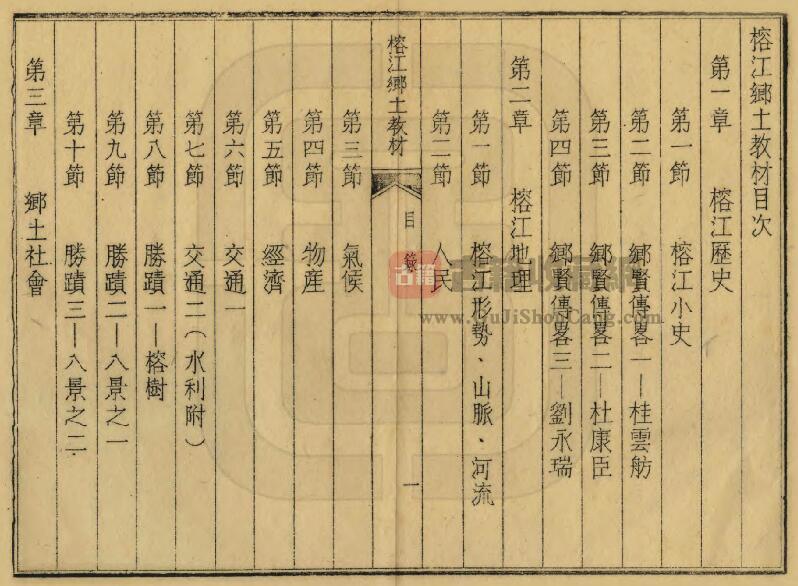 榕江鄉土教材目次
第一章 榕江歷史
第一節 榕江小史
第二節 鄉賢傳畧一—桂雲舫
第三節 鄉賢傳畧二—杜康臣
第四節 鄉賢傳畧三—劉永瑞
第二章 榕江地理
第一節 榕江形勢、山脈、河流
第二節 人民
榕江鄉土教材 目錄 一
第三節 氣候
第四節 物產
第五節 經濟
第六節 交通一
第七節 交通二(水利附)
第八節 勝蹟一—榕樹
第九節 勝蹟二—八景之一
第十節 勝蹟三—八景之二
第三章 鄉土社會
古籍 古籍收藏網
www.GuJiShouCang.com